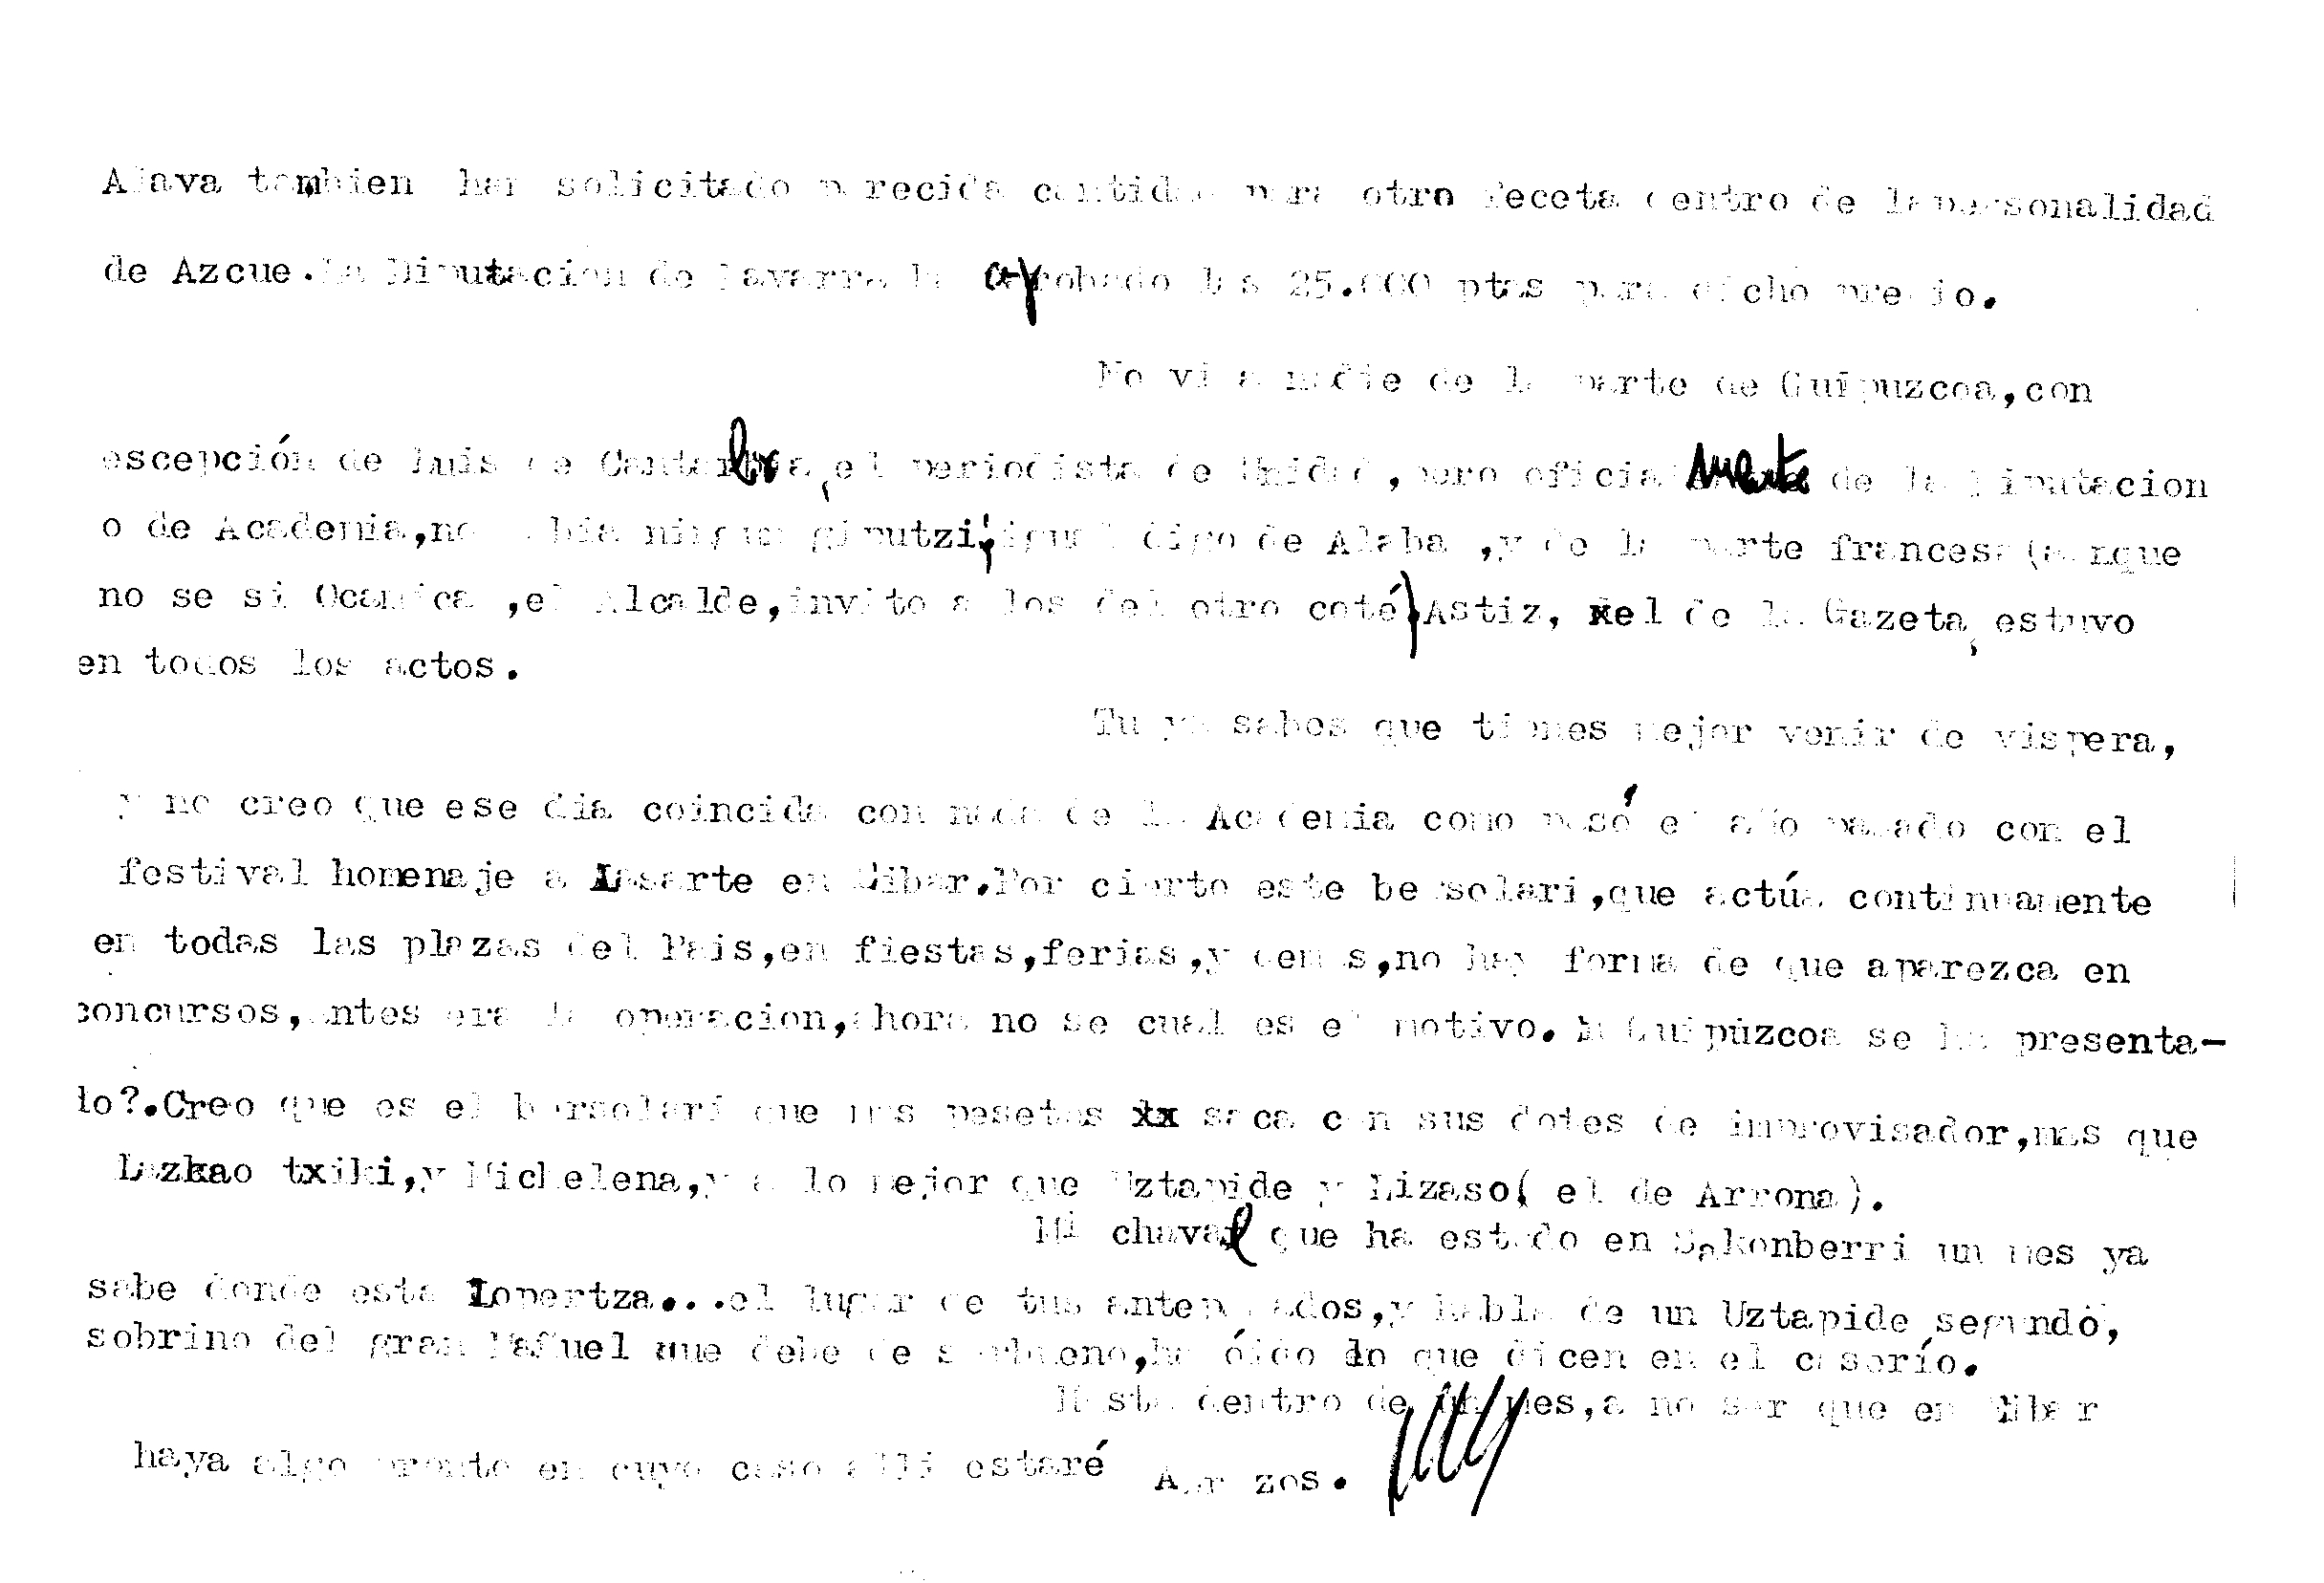 Alava tambien han solicitado parecida cantidad para otra faceta dentro de la personalidad
de Azcue.La Diputacion de Navarra ha aprobado las 25.000 ptas para dicho premio.
No vi a nadie de la parte de Guipuzcoa,con
escepción de Luis de Cantabria,el periodista de Unidad,pero oficialmente de la Diputacion
o de Academia,no habia ningun giputzi;igual digo de Alaba ,y de la parte francesa(aunque
no se si Ocamica ,el Alcalde,invito a los del otro coté)Astiz, xel de la Gazeta, estuvo
en todos los actos.
Tu ya sabes que tienes mejor venir de vispera,
y no creo que ese dia coincida con nada de la Academia como pasó el año pasado con el
festival homenaje a Lasarte en Eibar.Por cierto este bersolari,que actúa continuamente
en todas las plazas del Pais,en fiestas,ferias,y demas,no hay forma de que aparezca en
concursos,antes era la operacion,ahora no se cual es el motivo. En Guipúzcoa se ha presenta-
do?.Creo que es el bersolari que mas pesetas xx saca con sus dotes de improvisador,mas que
Lazkao txiki,y Michelena,y a lo mejor que Uztapide y Lizaso( el de Arrona).
Mi chaval que ha estado en Lekonberri un mes ya
sabe donde esta Lopertza...el lugar de tus antepasados,y habla de un Uztapide segundo,
sobrino del gran Mañuel que debe de ser bueno,ha óido lo que dicen en el caserío.
Hasta dentro de un mes,a no ser que en Eibar
haya algo pronto en cuyo caso alli estaré Abrazos.